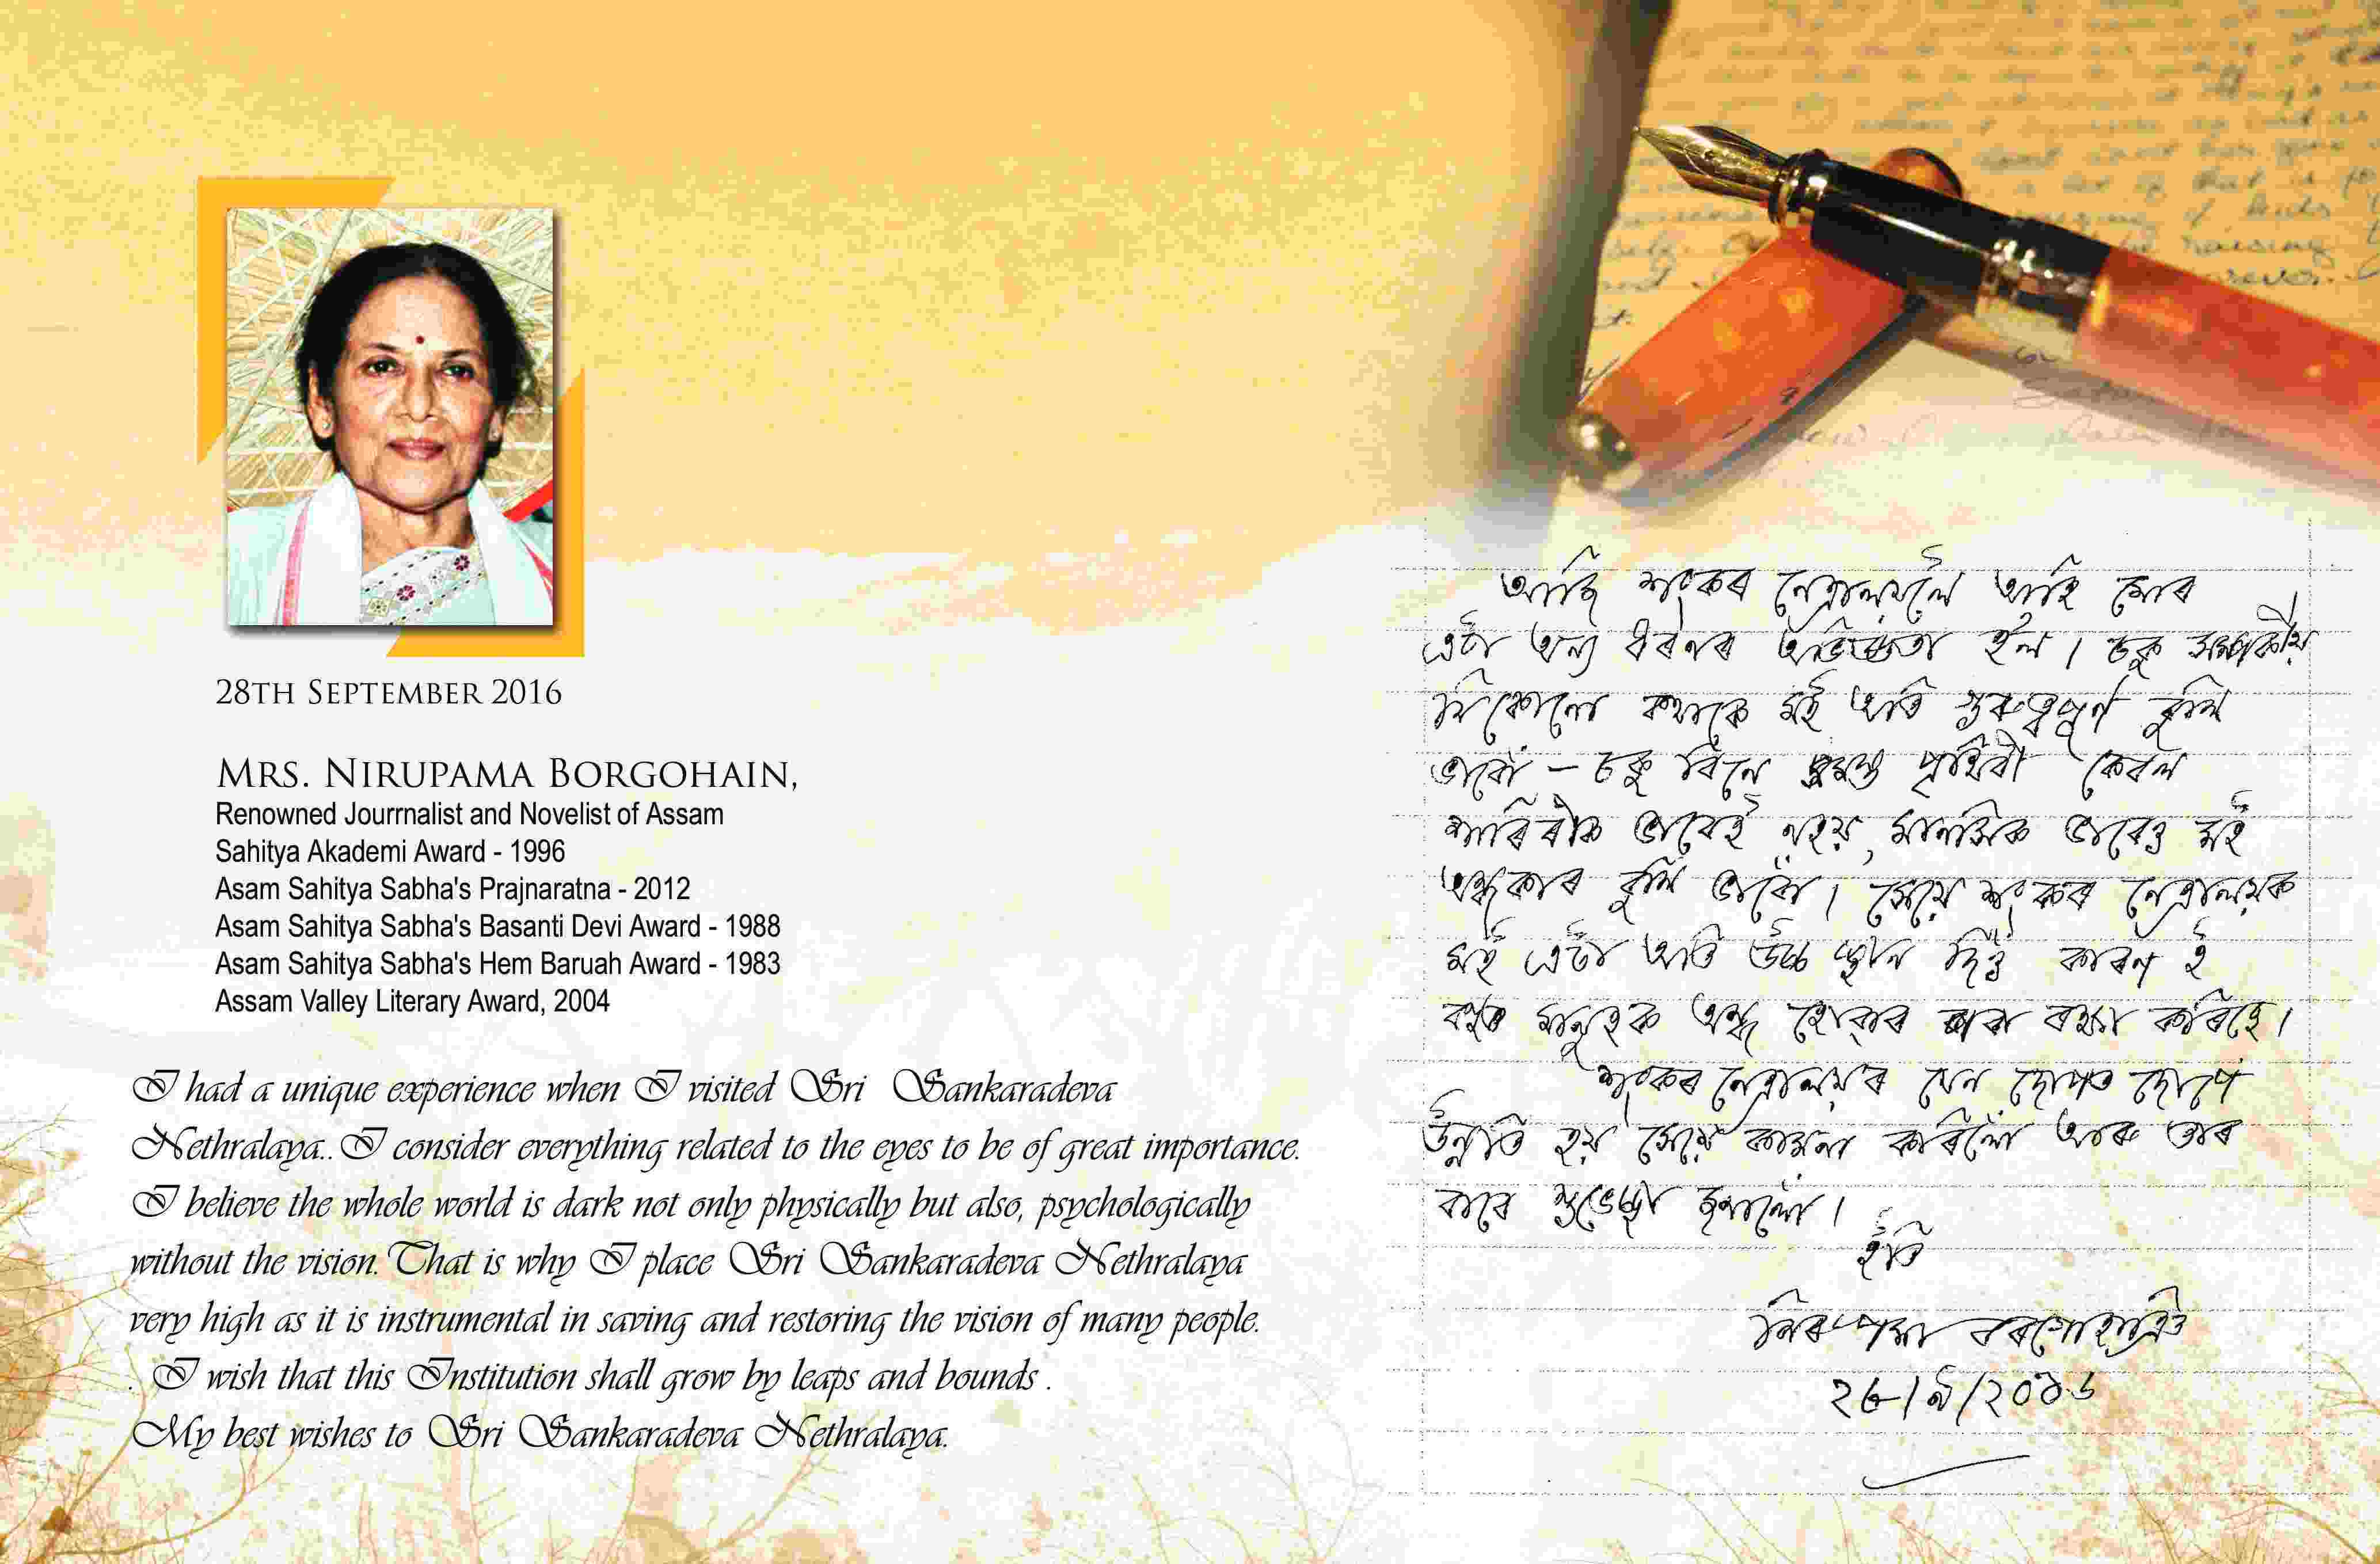 28TH SEPTEMBER 2016
MRS. NIRUPAMA BORGOHAIN,
Renowned Jourrnalist and Novelist of Assam
Sahitya Akademi Award - 1996
Asam Sahitya Sabha's Prajnaratna - 2012
Asam Sahitya Sabha's Basanti Devi Award - 1988
Asam Sahitya Sabha's Hem Baruah Award - 1983
Assam Valley Literary Award, 2004
I had a unique experience when I visited Sri Sankaradeva
Nethralaya.. I consider everything related to the eyes to be of great importance.
I believe the whole world is dark not only physically but also, psychologically
without the vision. That is why I place Sri Sankaradeva Nethralaya
very high as it is instrumental in saving and restoring the vision of many people.
. I wish that this Institution shall grow by leaps and bounds .
My best wishes to Sri Sankaradeva Nethralaya.
আজি শংকৰ নেত্ৰালয়লৈ আহি মোৰ
এটা অন্য ধৰণৰ অভিজ্ঞতা হ'ল । চকু সম্পৰ্কীয়
যিকোনো কথাকে মই অতি গুৰুত্বপূৰ্ণ বুলি
ভাবোঁ – চকু বিনে সমস্ত পৃথিৱী কেৱল
শাৰিৰীক ভাবেই নহয়, মানসিক ভাবেও মই
অন্ধকাৰ বুলি ভাবোঁ । সেয়ে শংকৰ নেত্ৰালয়ক
মই এটা অতি উচ্চ স্থান দিওঁ কাৰণ ই
বহুত মানুহক অন্ধ হোৱাৰ পৰা ৰক্ষা কৰিছে ।
শংকৰ নেত্ৰালয়ৰ যেন জোপে
উন্নতি হয় সেয়ে কামনা কৰিলোঁ আৰু তাৰ
বাবে শুভেচ্ছা জনালোঁ ।
ইতি
নিৰুপমা বৰগোহাঞি
২৮/৯/২০১৬